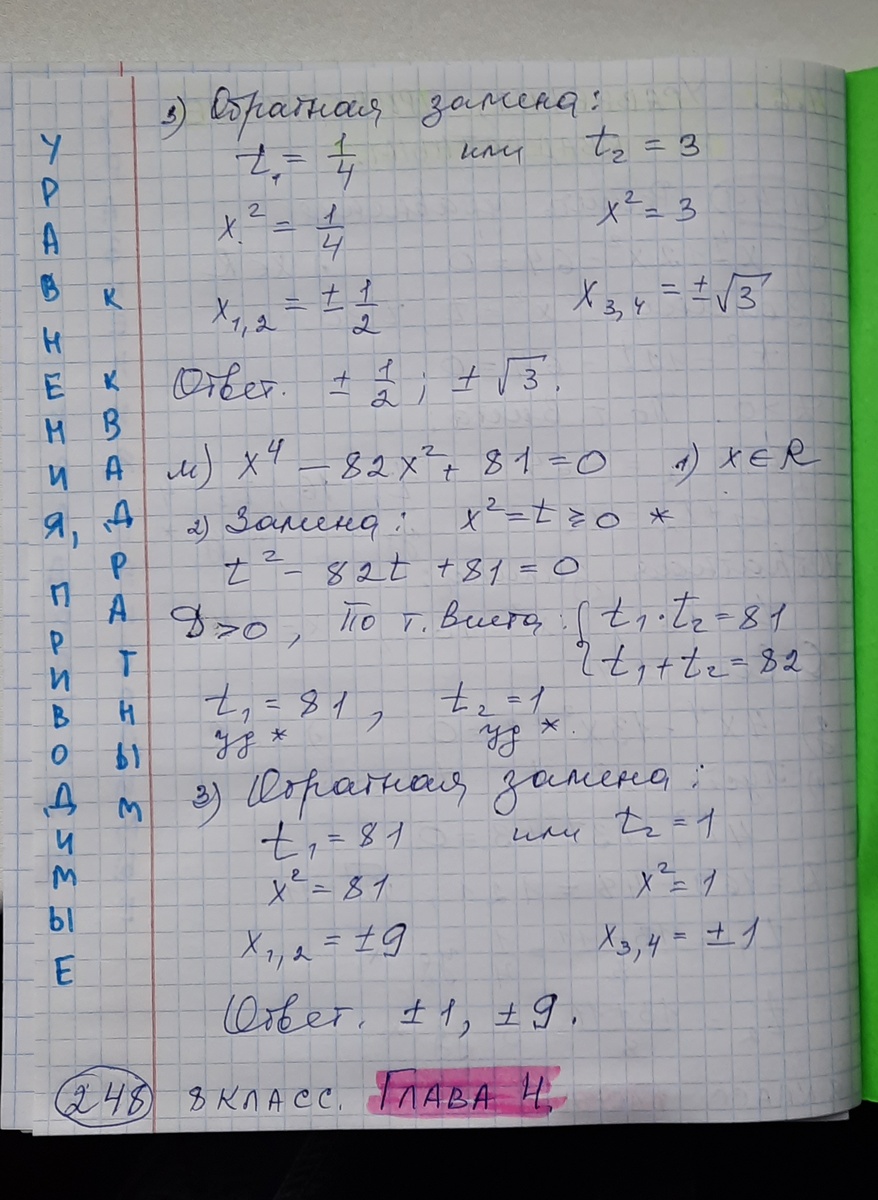 УРАВНЕНИЯ, ПРИВОДИМЫЕ
К КВАДРАТНЫМ
3) Обратная замена:
t₁ = 1/4 или t₂ = 3
x² = 1/4 x² = 3
x₁,₂ = ± 1/2 x₃,₄ = ±√3
Ответ. ± 1/2; ± √3.
м) x⁴ − 82x² + 81 = 0 1) x ∈ R
2) Замена: x² = t ≥ 0 *
t² − 82t + 81 = 0
D > 0, По т. Виета: { t₁ · t₂ = 81
{ t₁ + t₂ = 82
t₁ = 81, t₂ = 1
уд * уд *.
3) Обратная замена:
t₁ = 81 или t₂ = 1
x² = 81 x² = 1
x₁,₂ = ±9 x₃,₄ = ±1
Ответ. ±1, ±9.
248 8 КЛАСС. ГЛАВА 4.